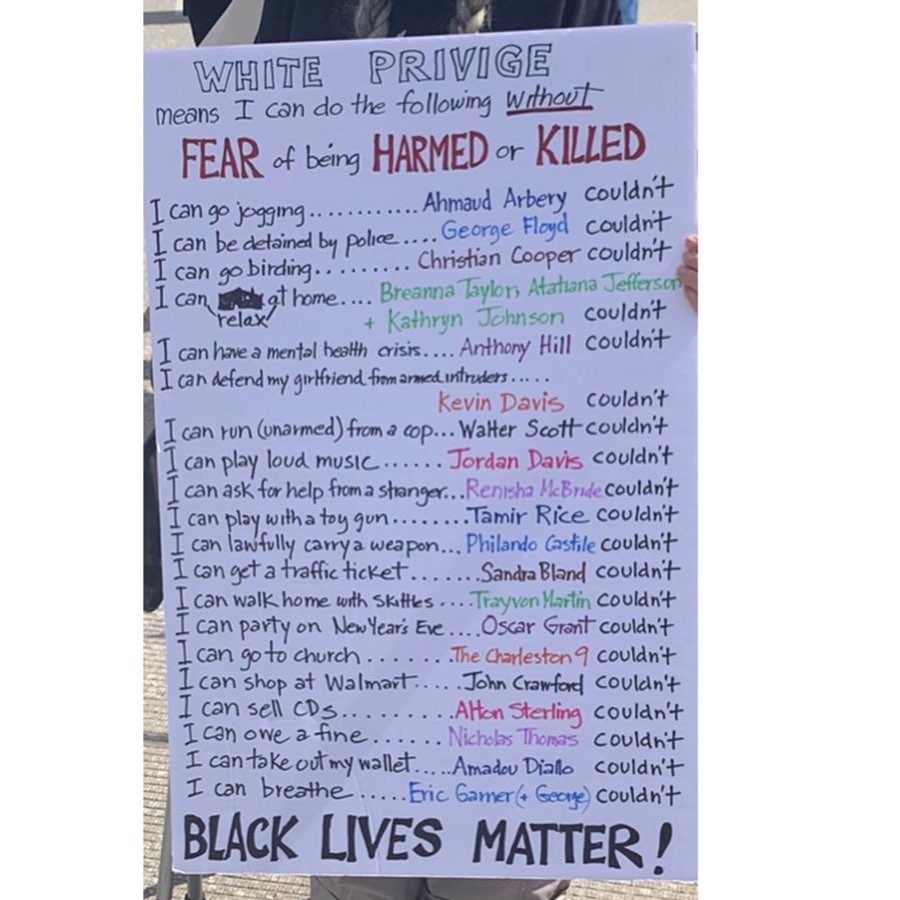 WHITE PRIVIGE
means I can do the following without
FEAR of being HARMED or KILLED
I can go jogging............ Ahmaud Arbery couldn't
I can be detained by police.... George Floyd couldn't
I can go birding......... Christian Cooper couldn't
I can relax at home.... Breanna Taylor, Atatiana Jefferson
+ Kathryn Johnson couldn't
I can have a mental health crisis.... Anthony Hill couldn't
I can defend my girlfriend from armed intruders.....
Kevin Davis couldn't
I can run (unarmed) from a cop... Walter Scott couldn't
I can play loud music...... Jordan Davis couldn't
I can ask for help from a stranger... Renisha McBride couldn't
I can play with a toy gun........ Tamir Rice couldn't
I can lawfully carry a weapon... Philando Castile couldn't
I can get a traffic ticket....... Sandra Bland couldn't
I can walk home with skittles .... Trayvon Martin couldn't
I can party on New Year's Eve.... Oscar Grant couldn't
I can go to church........ The Charleston 9 couldn't
I can shop at Walmart..... John Crawford couldn't
I can sell CDs.......... Alton Sterling couldn't
I can owe a fine....... Nicholas Thomas couldn't
I can take out my wallet..... Amadou Diallo couldn't
I can breathe ..... Eric Garner (+ George) couldn't
BLACK LIVES MATTER!